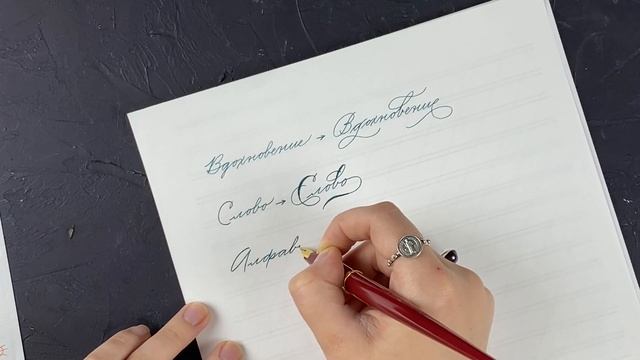 Вдохновение → Вдохновение
Слово → Слово
Алфав